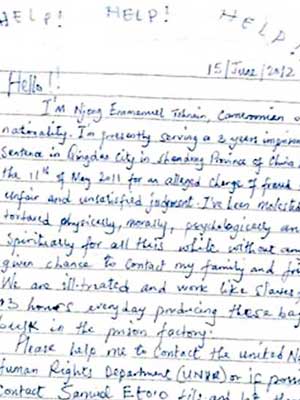 HELP! HELP! HELP!
15/June/2012
Hello!!
I'm Njong Emmanuel Tohnain, Cameroonian o
nationality. I'm presently serving a 3 years imprison
Sentence in Qingdao City in Shandong Province of China
the 11th of May 2011 for an alleged charge of fraud
unfair and unsatisfied judgment. I've been molested
tortured physically, morally, psychologically an
spiritually for all this while without any
given chance to contact my family and fri
We are ill-treated and work like slaves
13 hours everyday producing these bag
bulk in the prison factory.
Please help me to contact the united Na
Human Rights Department (UNHR) or is poss
Contact Samuel Eto'o fils and let the